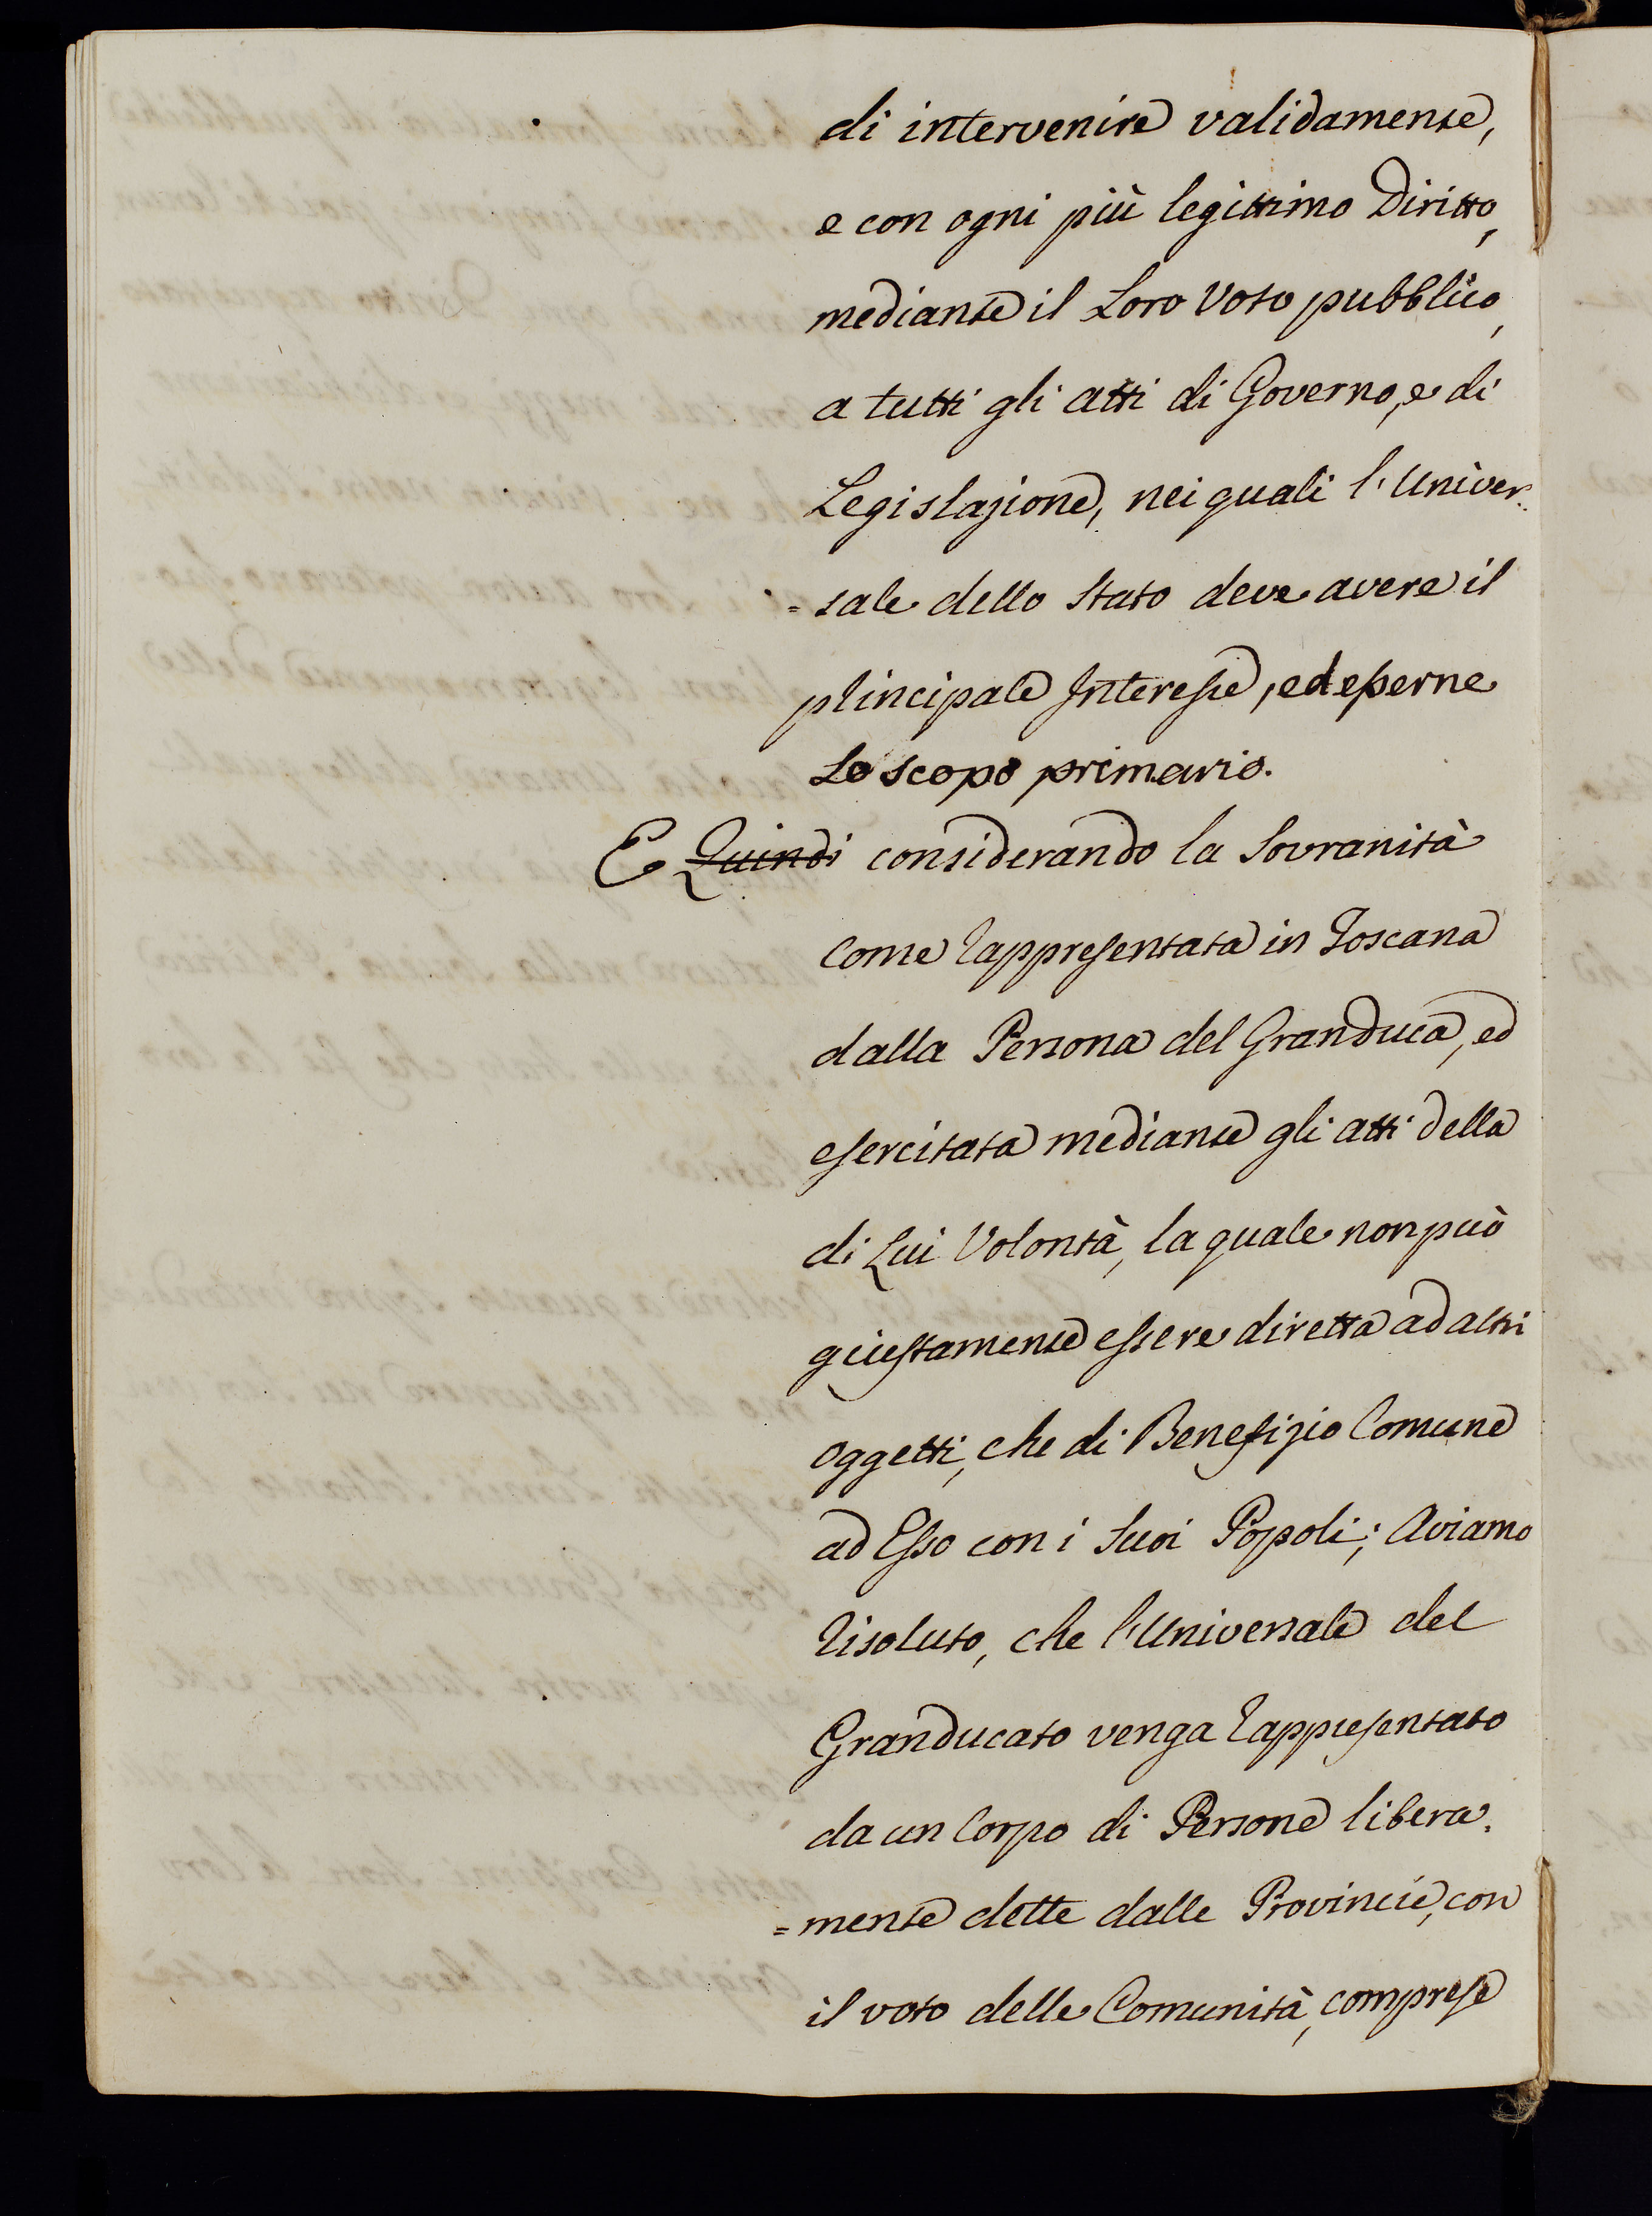 di intervenire validamente,
e con ogni più legittimo Diritto,
mediante il Loro Voto pubblico,
a tutti gli atti di Governo, e di
Legislazione, nei quali l'Univer=
=sale dello Stato deve avere il
plincipale Interesse, ed esserne
Lo scopo primario.
E Quindi considerando la Sovranità
Come rappresentata in Toscana
dalla Persona del Granduca, ed
esercitata mediante gli atti della
di Lui Volontà, la quale non può
giustamente essere diretta ad altri
oggetti, che di Benefizio Comune
ad Esso con i Suoi Popoli; Aviamo
risoluto, che l'Universale del
Granducato venga rappresentato
da un Corpo di Persone libera=
=mente elette dalle Provincie, con
il voto delle Comunità, comprese